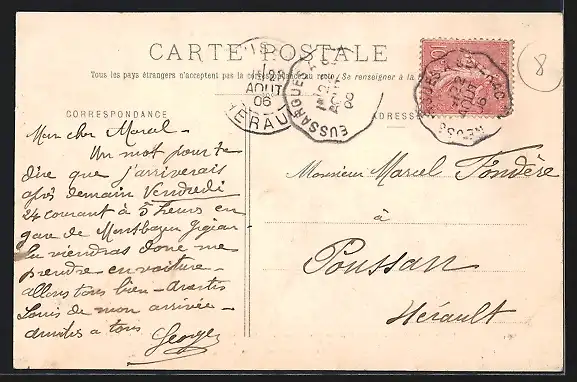 CARTE POSTALE
Tous les pays étrangers n'acceptent pas la correspondance au recto (Se renseigner à la
CORRESPONDANCE
ADRESSE
Mon cher Marcel -
Un mot pour te
dire que j'arriverais
après demain Vendredi
24 courant à 5 heures en
gare de Montbazin Gigian
tu viendras donc me
prendre en voiture -
allons tous bien -
Louis de mon arrivée -
amitiés a tous
George
Monsieur Marcel Fondère
à
Poussan
Hérault
22
AOUT
06
HERAULT
AOUT
06
AOUT
06
8